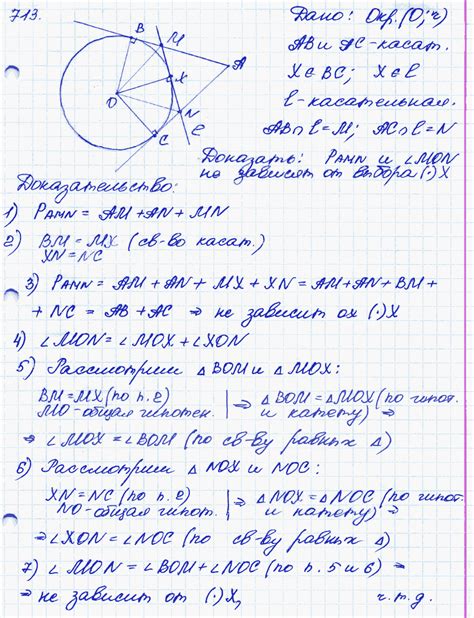 713.
Дано: Окр.(O; r)
AB и AC - касат.
X ∈ BC; X ∈ l
l - касательная.
AB∩l = M; AC∩l = N
Доказать: PAMN и ∠MON
не зависят от выбора (·)X
B M A X O N C l
Доказательство:
1) PAMN = AM + AN + MN
2) BM = MX (св-во касат.)
XN = NC
3) PAMN = AM + AN + MX + XN = AM + AN + BM +
+ NC = AB + AC ⇒ не зависит ох (·)X
4) ∠MON = ∠MOX + ∠XON
5) Рассмотрим △BOM и △MOX:
BM = MX (по п. 2) | ⇒ △BOM = △MOX (по гипот.
MO - общая гипотен. | и катету) ⇒
⇒ ∠MOX = ∠BOM (по св-ву равных △)
6) Рассмотрим △ NOX и NOC:
XN = NC (по п. 2) | ⇒ △NOX = △NOC (по гипот.
NO - общая гипот. | и катету) ⇒
⇒ ∠XON = ∠NOC (по св-ву равных △)
7) ∠MON = ∠BOM + ∠NOC (по п. 5 и 6) ⇒
⇒ не зависит от (·)X, ч.т.д.